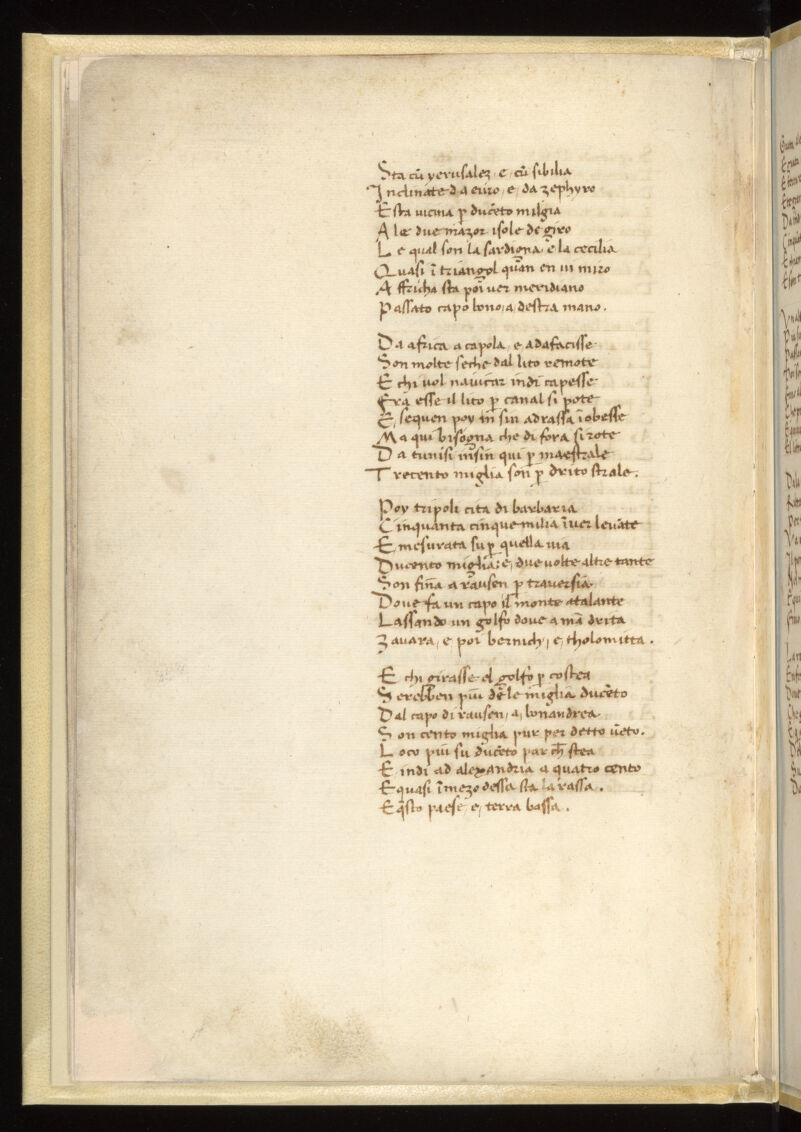 Sta cū yerusalez, e, cū sibilia
Inclinate da euro, e, da zephyro
E sta uicina p̱ duc̄eto milgia
A le due mazor isole de giro
L e qual son la sardigna, e la cecilia
Quasi ī triangol quan en in miro
A ffricha sta poi uer meridiano
Passato capo bono, a, destra mano.
Da africa a capola, e adafacisse
Son molte seche dal lito remote
E chi uol nauicar indi capesse
Fra esse il lito p̱ canal si pote
E, sequen poy in sin adrassa ī obesse
Ma qui bisogna che di fora si rote
D a tunisi insin qui p̱ maestrale
Trecento miglia son p̱ drito strale.
Poy tripoli cita di barbaria
Cinquanta cinque milia ī uer leuāte
E, mesurata su p̱ quella uia
Ducento miglia: e, due uolte altre tante
Son fina a rausen p̱ trauersia
Doue fa un capo il monte atalante
Lassando un golfo doue a mā drita
Zauara, e poi bernich, e, tholomitta.
E chi girasse el golfo p̱ costea
Serebben piu de le miglia duc̄eto
Dal capo di rausen, a, bonandrea
Son cento miglia pur per detto ūeto.
Loco piu su duc̄eto par ch̄ stea
E indi ad alexandria a quatro cento
E quasi ī mezo dessa sta la rassa.
E q̄sto paese, e, terra bassa.